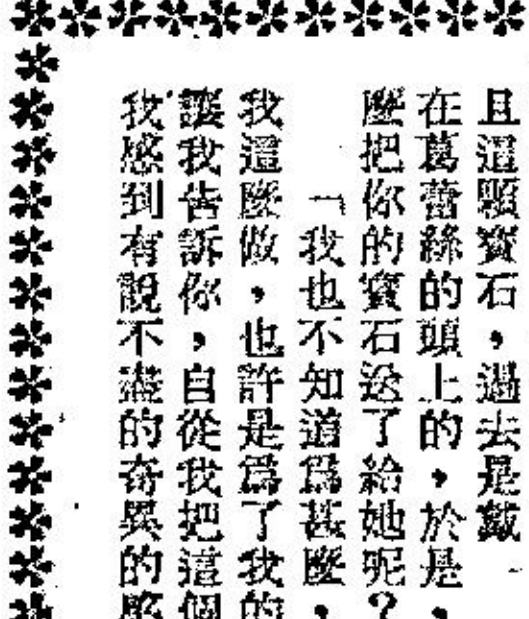 且這顆寶石，過去是戴
在葛蕾絲的頭上的，於是，
麼把你的寶石送了給她呢？
「我也不知道爲甚麼，
我這麼做，也許是爲了我的
讓我告訴你，自從我把這個
我感到有說不盡的奇異的感